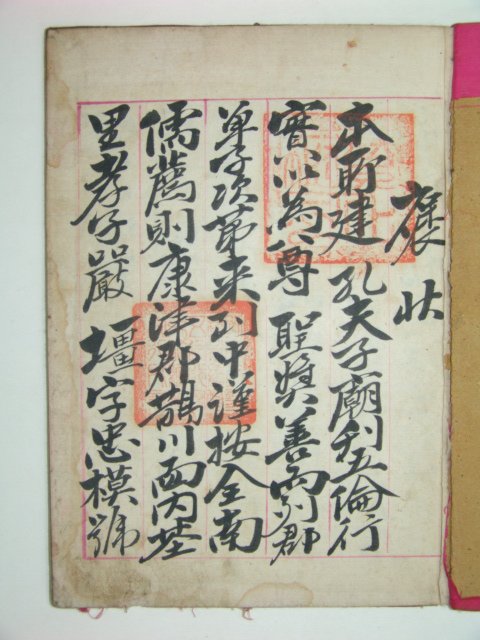 褒狀
本所建 孔夫子廟刊五倫行
實以為尊 聖奬善而列郡
單子次第來到中謹按全南
儒薦則康津郡鵲川面內基
里孝子嚴 壃字忠模號